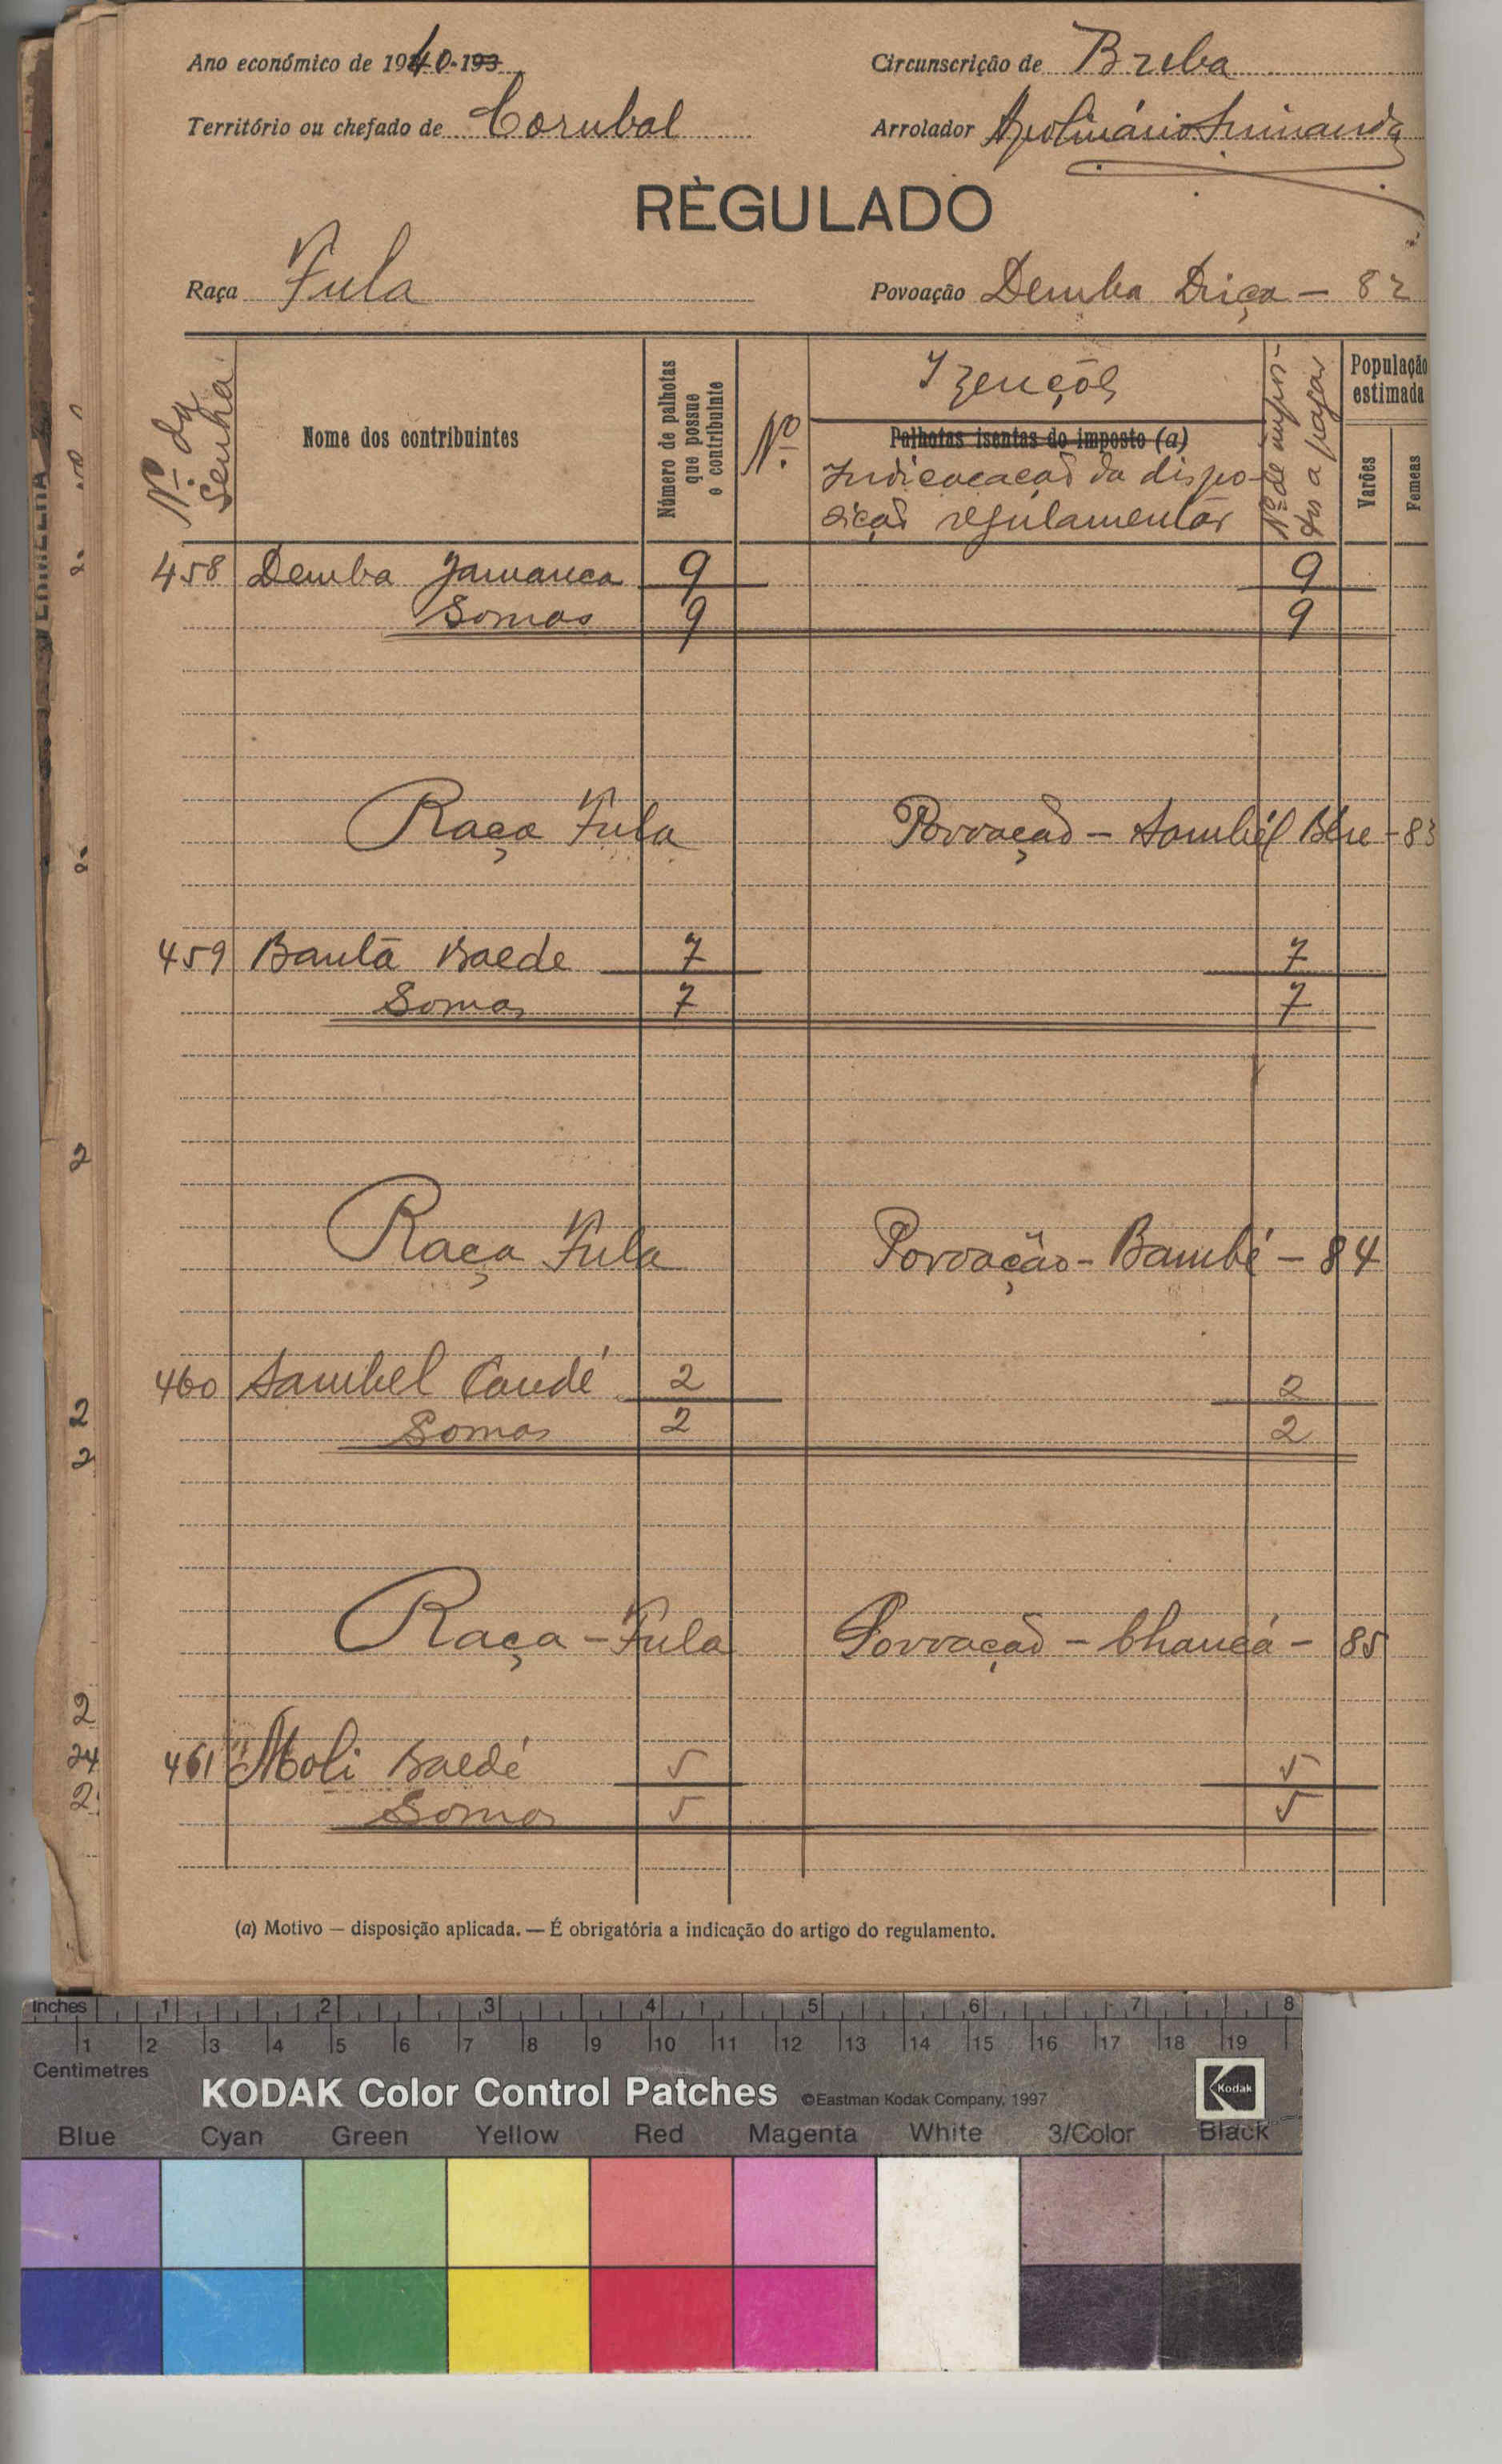 Ano económico de 1940-193
Circunscrição de Breba
Território ou chefado de Corubal
Arrolador Apolinário
RÈGULADO
Raça Fula
Povoação Demba Driça – 82
Nº. da Senha
Nome dos contribuintes
Número de palhotas que possue o contribuinte
Nº
Izenções
Palhotas isentas do imposto (a)
Indicacação da disposição regulamentar
Nº de impostos a pagar
População estimada
Varões
Femeas
458 Demba Jamanca 9 9
Somas 9 9
Raça Fula Povoação – Sambél Bere – 83
459 Bantã Baede 7 7
Somas 7 7
Raça Fula Povoação – Bambé – 84
460 Sambel Candé 2 2
Somas 2 2
Raça – Fula Povoação – Chancá – 85
461 Moli Baedé 5 5
Somas 5 5
(a) Motivo — disposição aplicada. — É obrigatória a indicação do artigo do regulamento.
2
2
2
2
24
2
Inches 1 2 3 4 5 6 7 8
1 2 3 4 5 6 7 8 9 10 11 12 13 14 15 16 17 18 19
Centimetres
KODAK Color Control Patches ©Eastman Kodak Company, 1997 Kodak
Blue Cyan Green Yellow Red Magenta White 3/Color Black